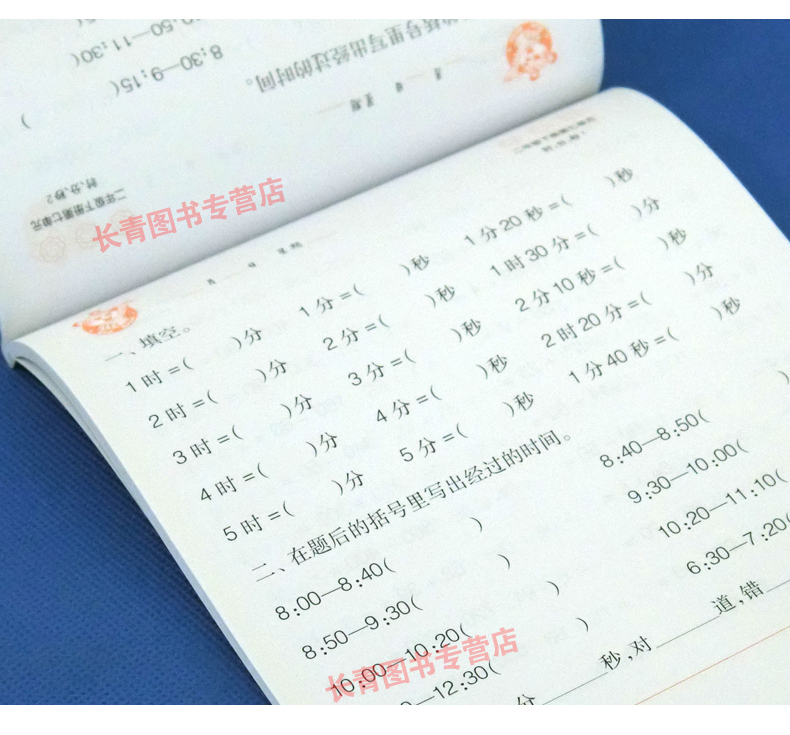 :50—11:30(
8:30—9:15( )
括号里写出经过的时间。
月 日 星期
二年级下册第七单元
时、分、秒 2
长青图书专营店
月 日 星期
一、填空。
1时=( )分 1分=( )秒 1分20秒=( )秒
2时=( )分 2分=( )秒 1时30分=( )分
3时=( )分 3分=( )秒 2分10秒=( )秒
4时=( )分 4分=( )秒 2时20分=( )分
5时=( )分 5分=( )秒 1分40秒=( )秒
二、在题后的括号里写出经过的时间。
8:00—8:40( ) 8:40—8:50( )
8:50—9:30( ) 9:30—10:00(
10:00—10:20( ) 10:20—11:10(
—12:30( ) 6:30—7:20(
分____秒,对____道,错____
长青图书专营店